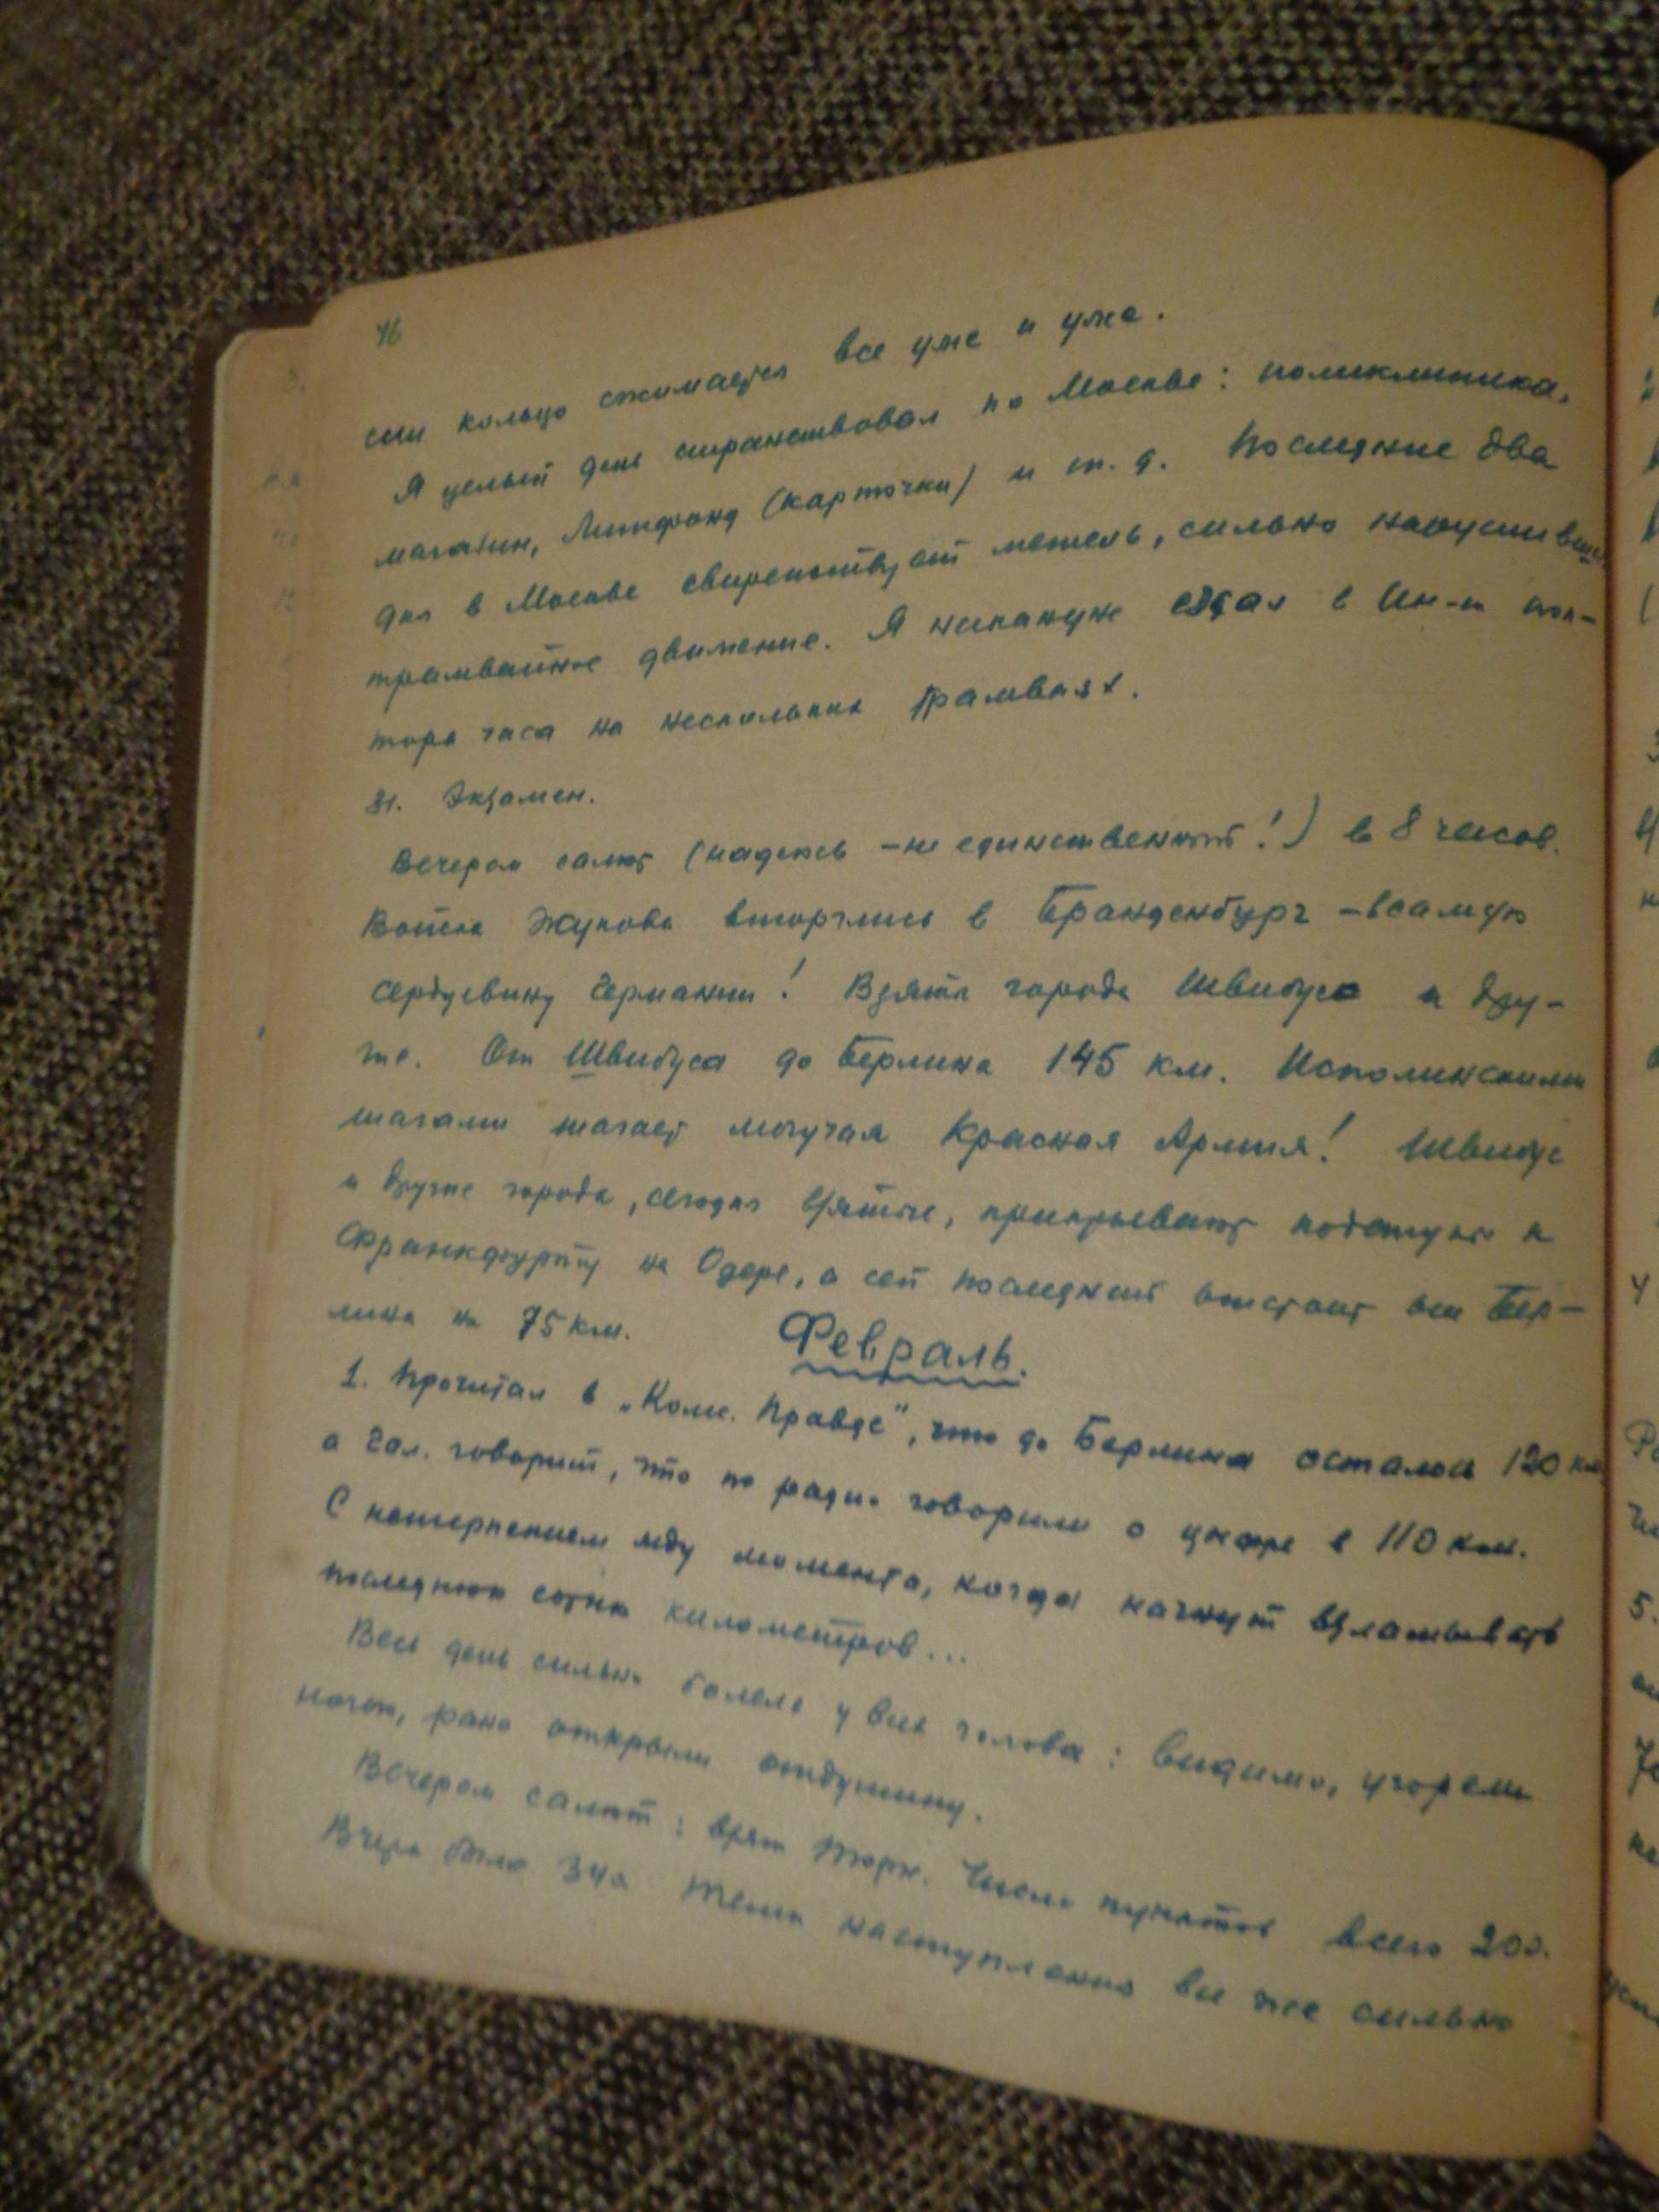 46
сии кольцо сжимается все уже и уже.
Я целый день странствовал по Москве: поликлиника,
магазин, Литфонд (карточки) и т. д. Последние два
дня в Москве свирепствует метель, сильно
трамвайное движение. Я накануне ехал в Ин-т пол-
тора часа на нескольких трамваях.
31. Экзамен.
Вечером салют (надеюсь - не единственный!) в 8 часов.
Войска Жукова вторглись в Бранденбург - в самую
сердцевину Германии! Взяты города Швибус и дру-
гие. От Швибуса до Берлина 145 км. Исполинскими
шагами шагает могучая Красная Армия! Швибус
и другие города, сегодня взятые, прикрывают подступы к
Франкфурту на Одере, а сей последний отстоит от Бер-
лина на 75 км.
Февраль.
1. Прочитал в „Комс. Правде", что до Берлина осталось 120 км,
а Гал. говорит, что по радио говорили о цифре в 110 км.
С нетерпением жду момента, когда начнут взламывать
последнюю сотню километров...
Весь день сильно болела у всех голова: видимо, угорели
ночью, рано открыли отдушину.
Вечером салют: взят Торн. Число пунктов всего 200.
Вчера было 340. Темп наступления все же сильно